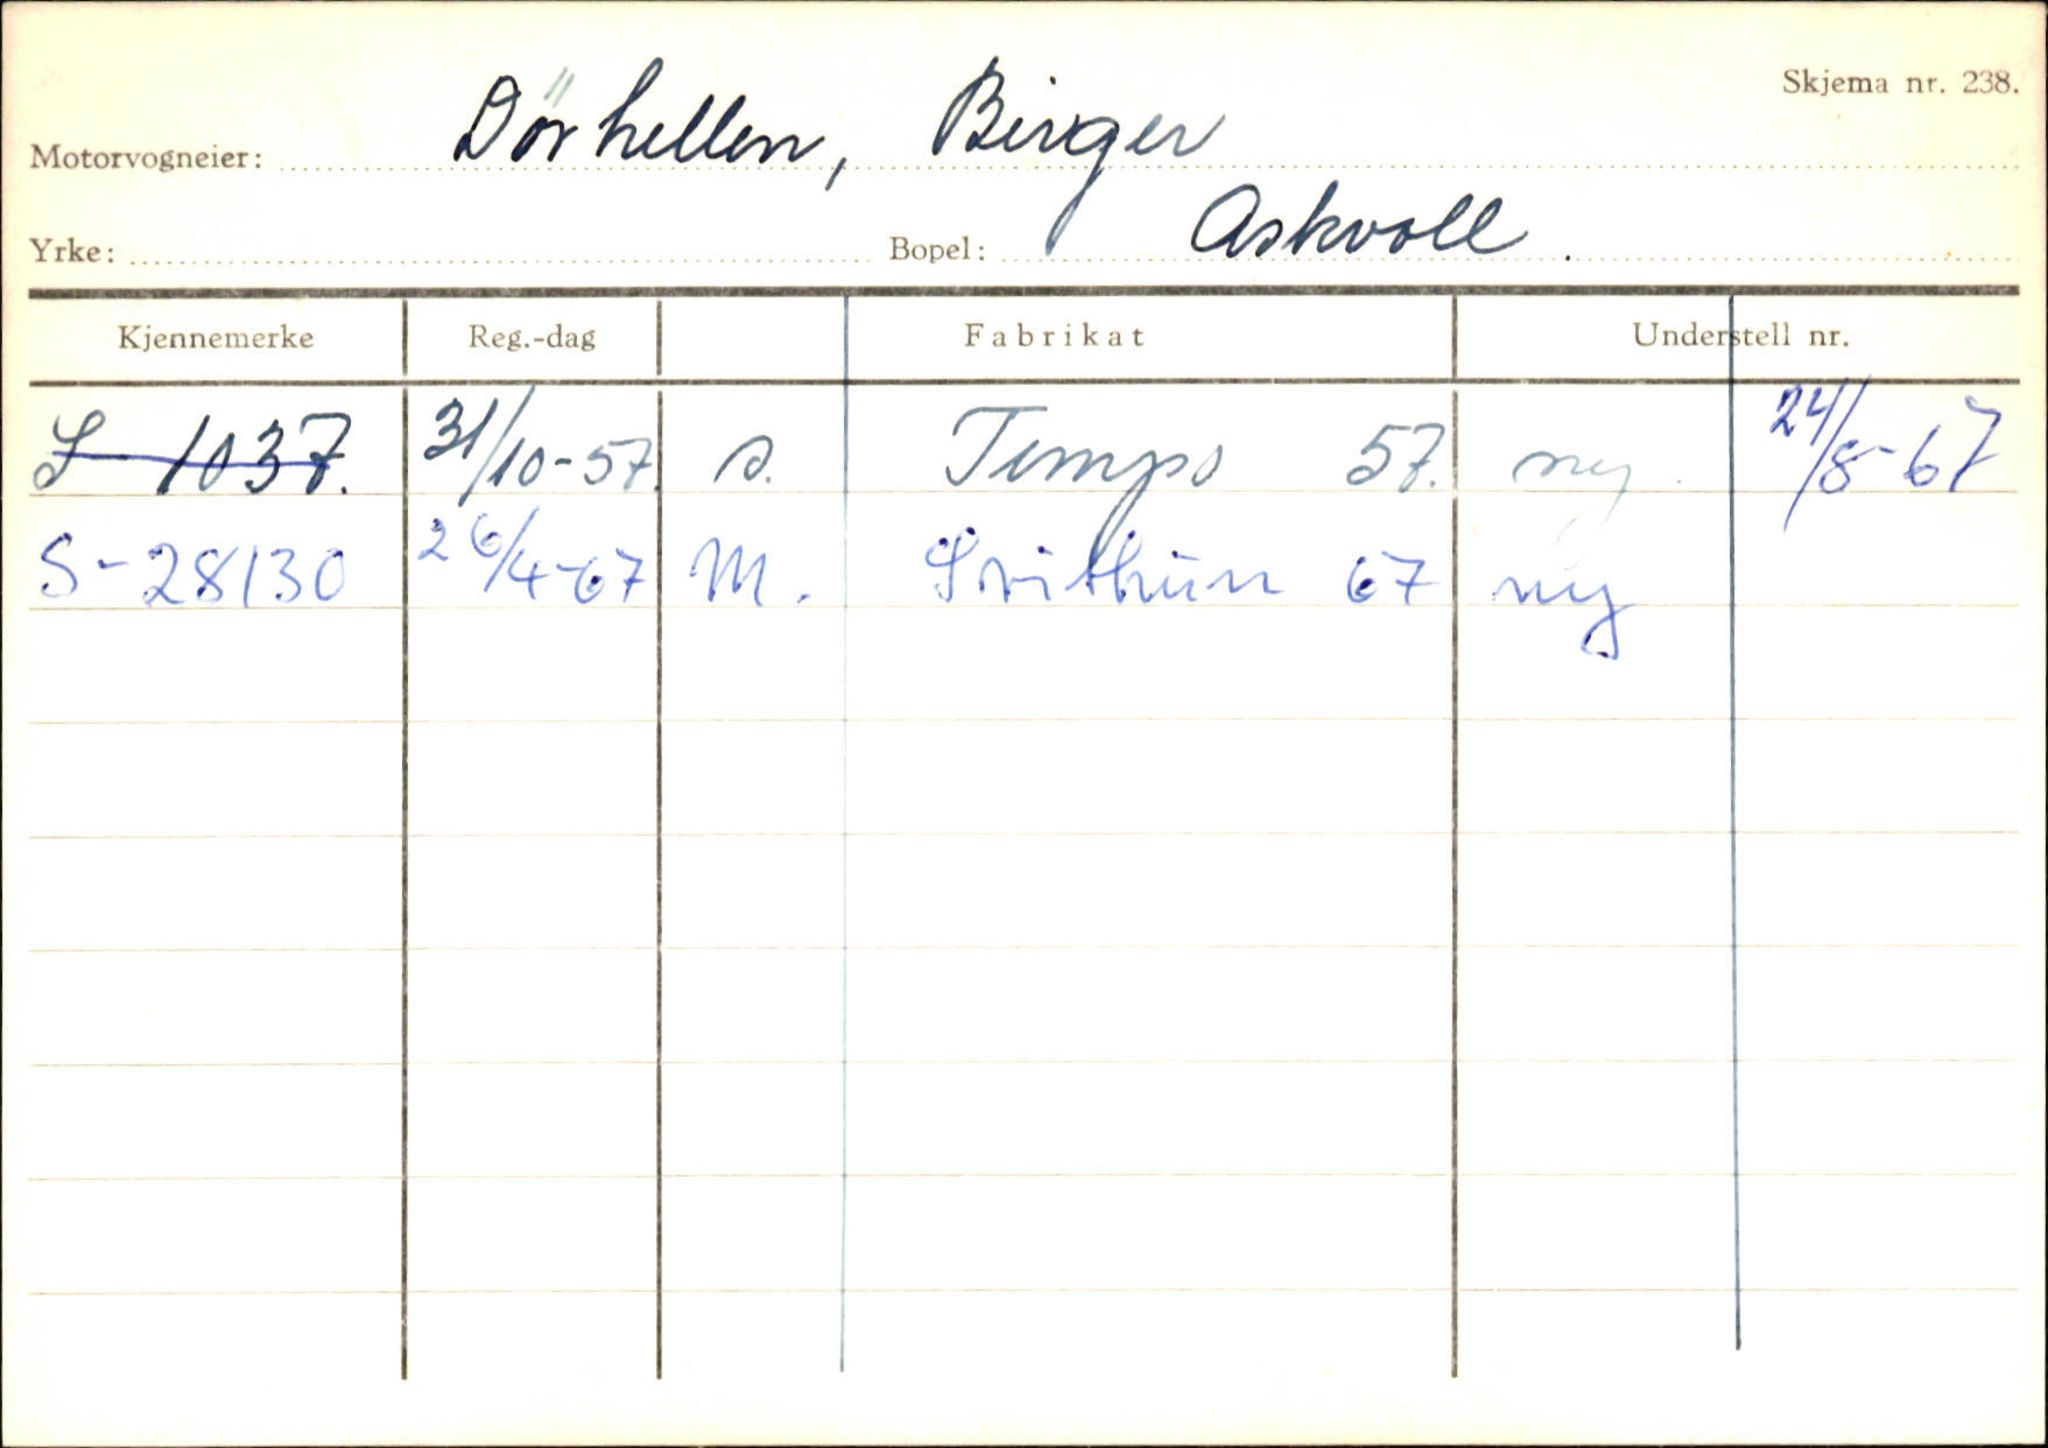 Skjema nr. 238.
Motorvogneier: Dörhellen, Birger
Yrke: Bopel: Askvoll.
Kjennemerke Reg.-dag Fabrikat Understell nr.
S-1037. 31/10-57. s. Tempo 57. ny. 24/8-67
S-28130 26/4-67 M. Svithun 67 ny